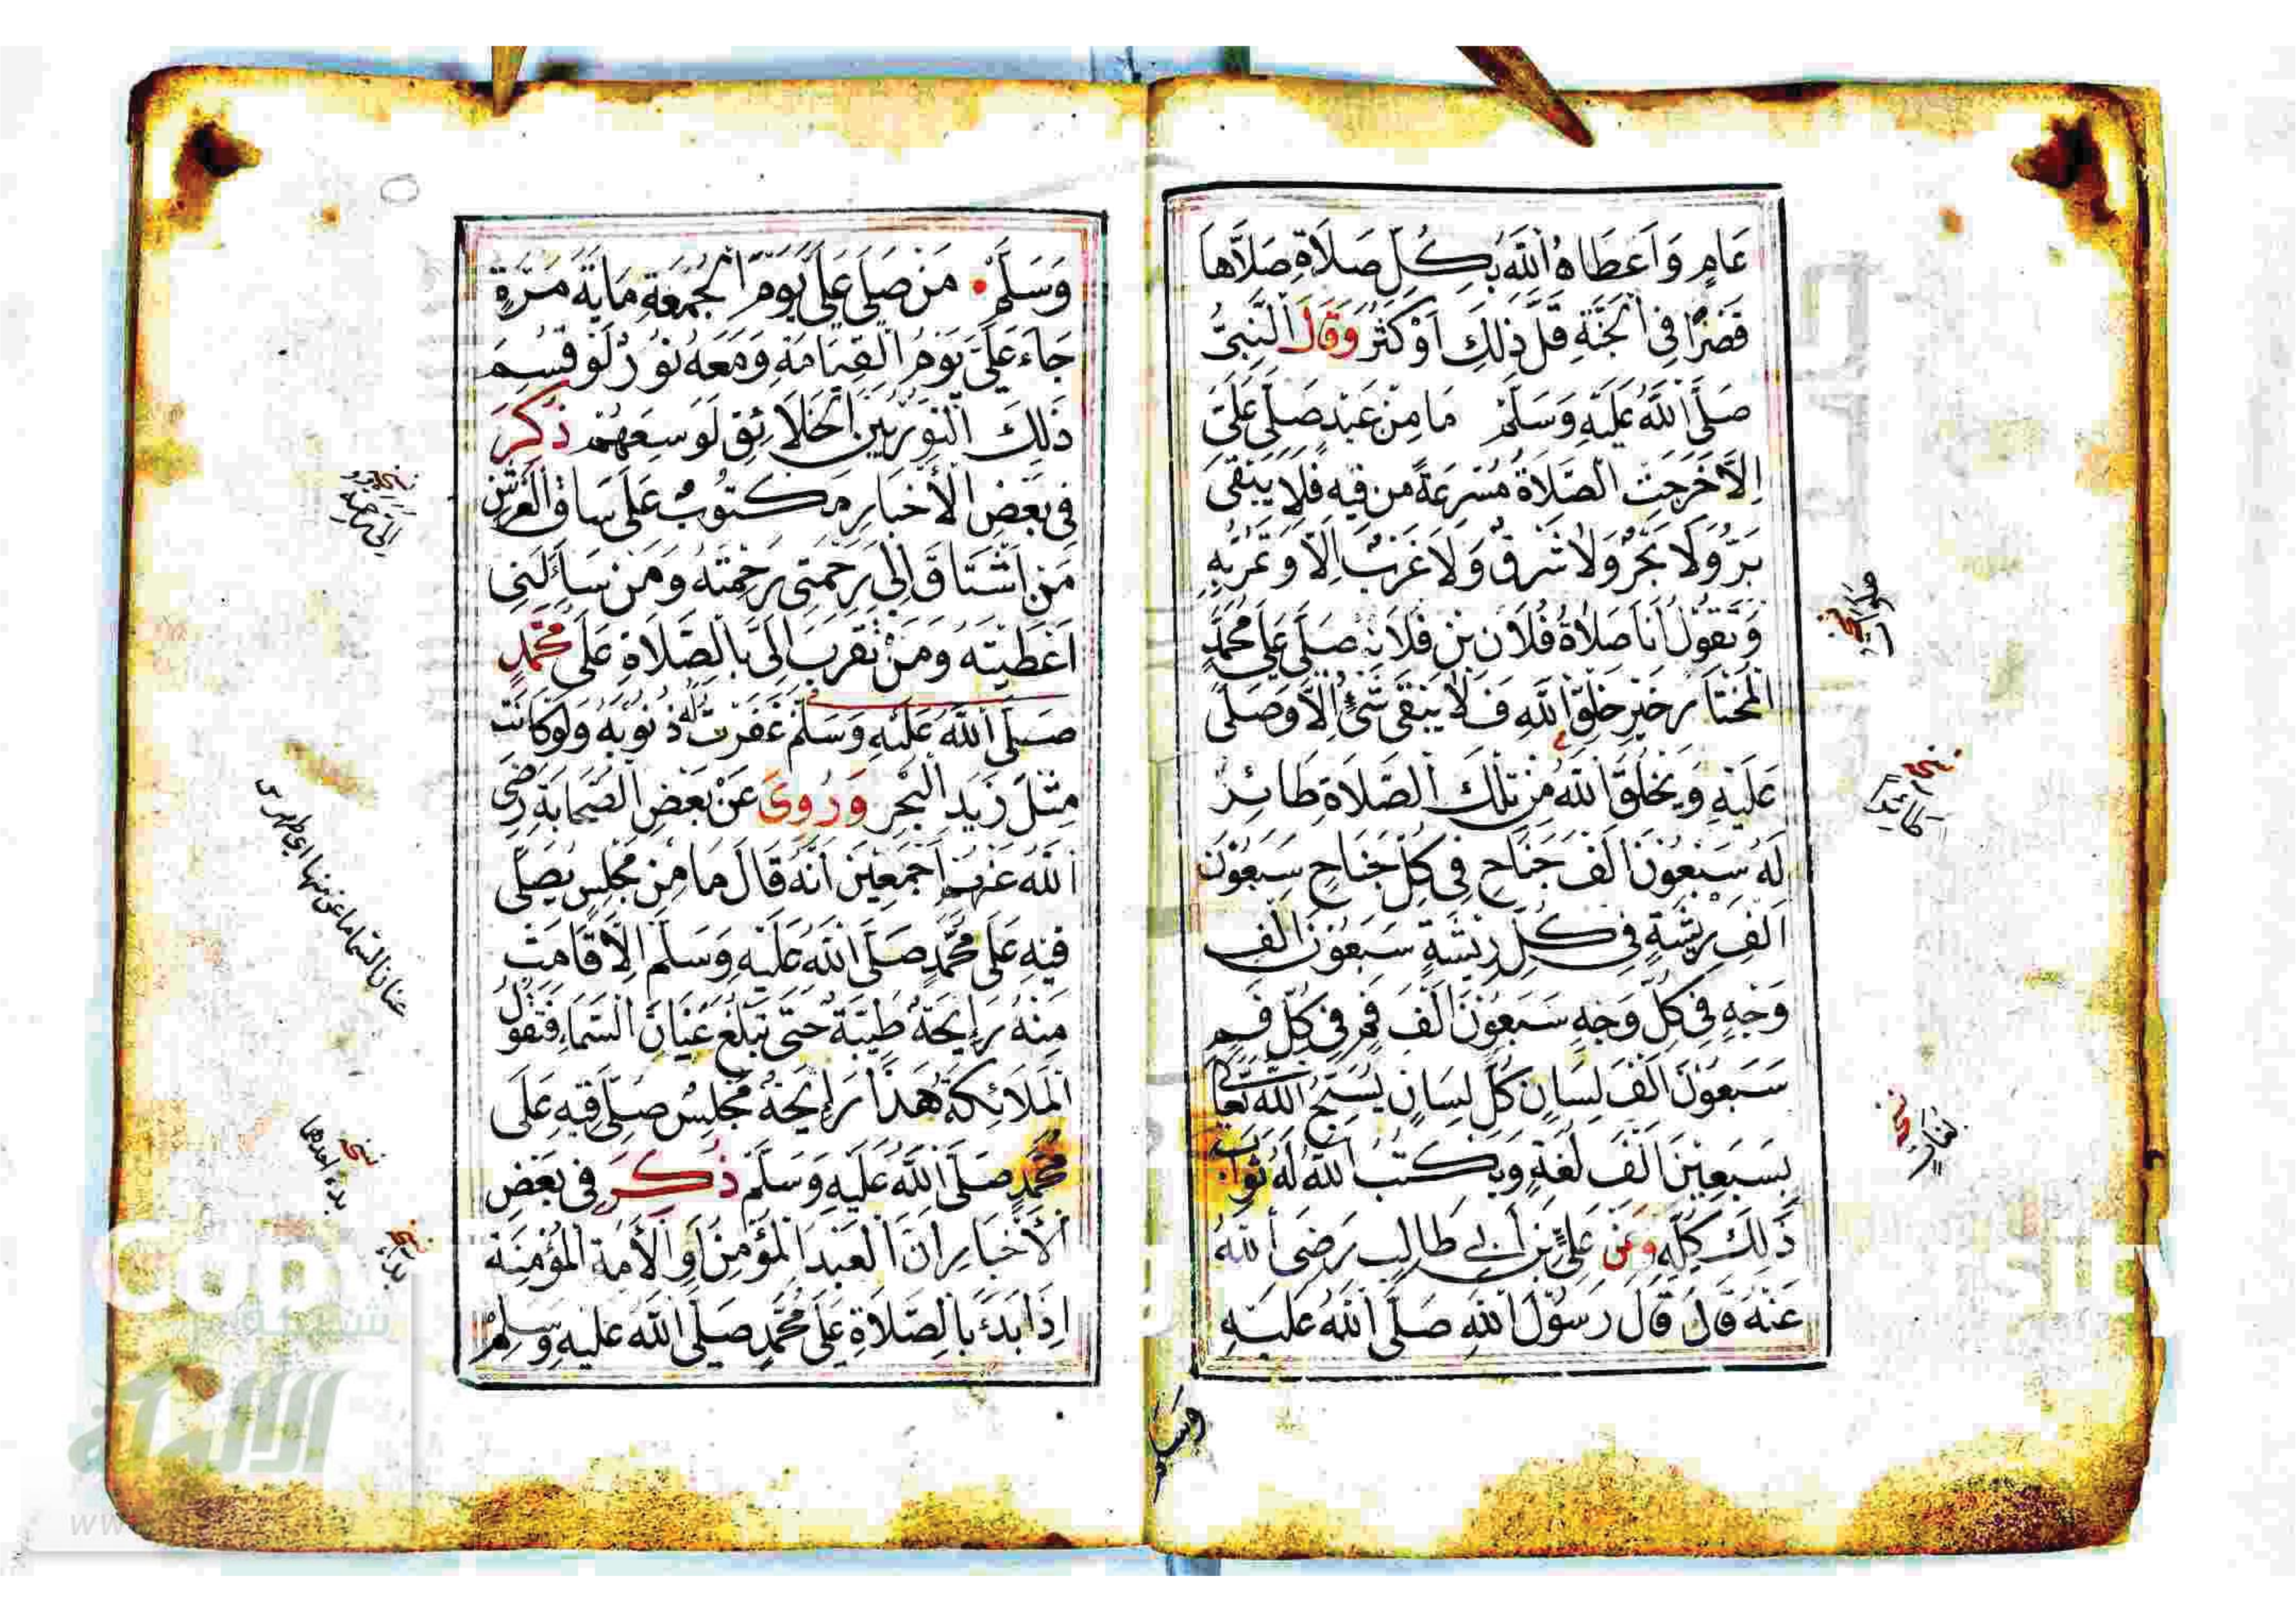 عَامٍ وَاَعْطَاهُ اللَّهُ بِكُلِّ صَلَاةٍ صَلَّاهَا
قَصْرًا فِى الْجَنَّةِ قَلَّ ذٰلِكَ اَوْ كَثُرَ وَقَالَ النَّبِىُّ
صَلَّى اللَّهُ عَلَيْهِ وَسَلَّمَ مَا مِنْ عَبْدٍ صَلَّى عَلَىَّ
اِلَّا خَرَجَتِ الصَّلَاةُ مُسْرِعَةً مِنْ فِيهِ فَلَا يَبْقَى
بَرٌّ وَلَا بَحْرٌ وَلَا شَرْقٌ وَلَا غَرْبٌ اِلَّا وَتَمُرُّ بِهِ
وَتَقُولُ اَنَا صَلَاةُ فُلَانِ بْنِ فُلَانٍ صَلَّى عَلَى مُحَمَّدٍ
الْمُخْتَارِ خَيْرِ خَلْقِ اللَّهِ فَلَا يَبْقَى شَىْءٌ اِلَّا وَصَلَّى
عَلَيْهِ وَيَخْلُقُ اللَّهُ مِنْ تِلْكَ الصَّلَاةِ طَائِرٌ
لَهُ سَبْعُونَ اَلْفَ جَنَاحٍ فِى كُلِّ جَنَاحٍ سَبْعُونَ
اَلْفَ رِيشَةٍ فِى كُلِّ رِيشَةٍ سَبْعُونَ اَلْفَ
وَجْهٍ فِى كُلِّ وَجْهٍ سَبْعُونَ اَلْفَ فَمٍ فِى كُلِّ فَمٍ
سَبْعُونَ اَلْفَ لِسَانٍ كُلُّ لِسَانٍ يُسَبِّحُ اللَّهَ تَعَالَى
بِسَبْعِينَ اَلْفَ لُغَةٍ وَيَكْتُبُ اللَّهُ لَهُ ثَوَابَ
ذٰلِكَ كُلِّهِ وَعَنْ عَلِىِّ بْنِ أَبِى طَالِبٍ رَضِىَ اللَّهُ
عَنْهُ قَالَ قَالَ رَسُولُ اللَّهِ صَلَّى اللَّهُ عَلَيْهِ
وسلم
نسخة
طائرا
نسخة
لغات
وَسَلَّمَ مَنْ صَلَّى عَلَىَّ يَوْمَ الْجُمُعَةِ مِايَةَ مَرَّةٍ
جَاءَ عَلَىَّ يَوْمَ الْقِيَامَةِ وَمَعَهُ نُورٌ لَوْ قُسِمَ
ذٰلِكَ النُّورُ بَيْنَ الْخَلَائِقِ لَوَسِعَهُمْ ذُكِرَ
فِى بَعْضِ الْأَخْبَارِ مَكْتُوبٌ عَلَى سَاقِ الْعَرْشِ
مَنِ اشْتَاقَ اِلَى رَحْمَتِى رَحِمْتُهُ وَمَنْ سَأَلَنِى
اَعْطَيْتُهُ وَمَنْ تَقَرَّبَ اِلَىَّ بِالصَّلَاةِ عَلَى مُحَمَّدٍ
صَلَّى اللَّهُ عَلَيْهِ وَسَلَّمَ غَفَرْتُ لَهُ ذُنُوبَهُ وَلَوْ كَانَتْ
مِثْلَ زَبَدِ الْبَحْرِ وَرُوِىَ عَنْ بَعْضِ الصَّحَابَةِ رَضِىَ
اللَّهُ عَنْهُمْ اَجْمَعِينَ اَنَّهُ قَالَ مَا مِنْ مَجْلِسٍ يُصَلَّى
فِيهِ عَلَى مُحَمَّدٍ صَلَّى اللَّهُ عَلَيْهِ وَسَلَّمَ اِلَّا قَامَتْ
مِنْهُ رَايِحَةٌ طَيِّبَةٌ حَتَّى تَبْلُغَ عَنَانَ السَّمَاءِ فَتَقُولُ
الْمَلَائِكَةُ هٰذَا رَايِحَةُ مَجْلِسٍ صُلِّىَ فِيهِ عَلَى
مُحَمَّدٍ صَلَّى اللَّهُ عَلَيْهِ وَسَلَّمَ ذُكِرَ فِى بَعْضِ
الْأَخْبَارِ اَنَّ الْعَبْدَ الْمُؤْمِنَ اَوِ الْأَمَةَ الْمُؤْمِنَةَ
اِذَا بَدَءَ بِالصَّلَاةِ عَلَى مُحَمَّدٍ صَلَّى اللَّهُ عَلَيْهِ وَسَلَّمَ
نسخة
بدء احدهما
نسخة
شبكة
الألوكة